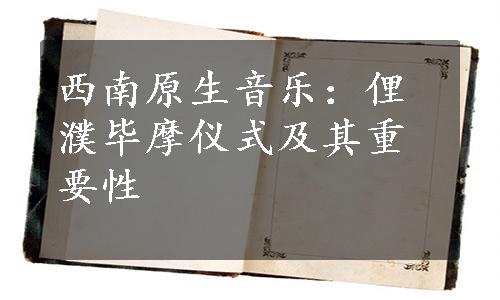 西南原生音乐：俚
濮毕摩仪式及其重
要性